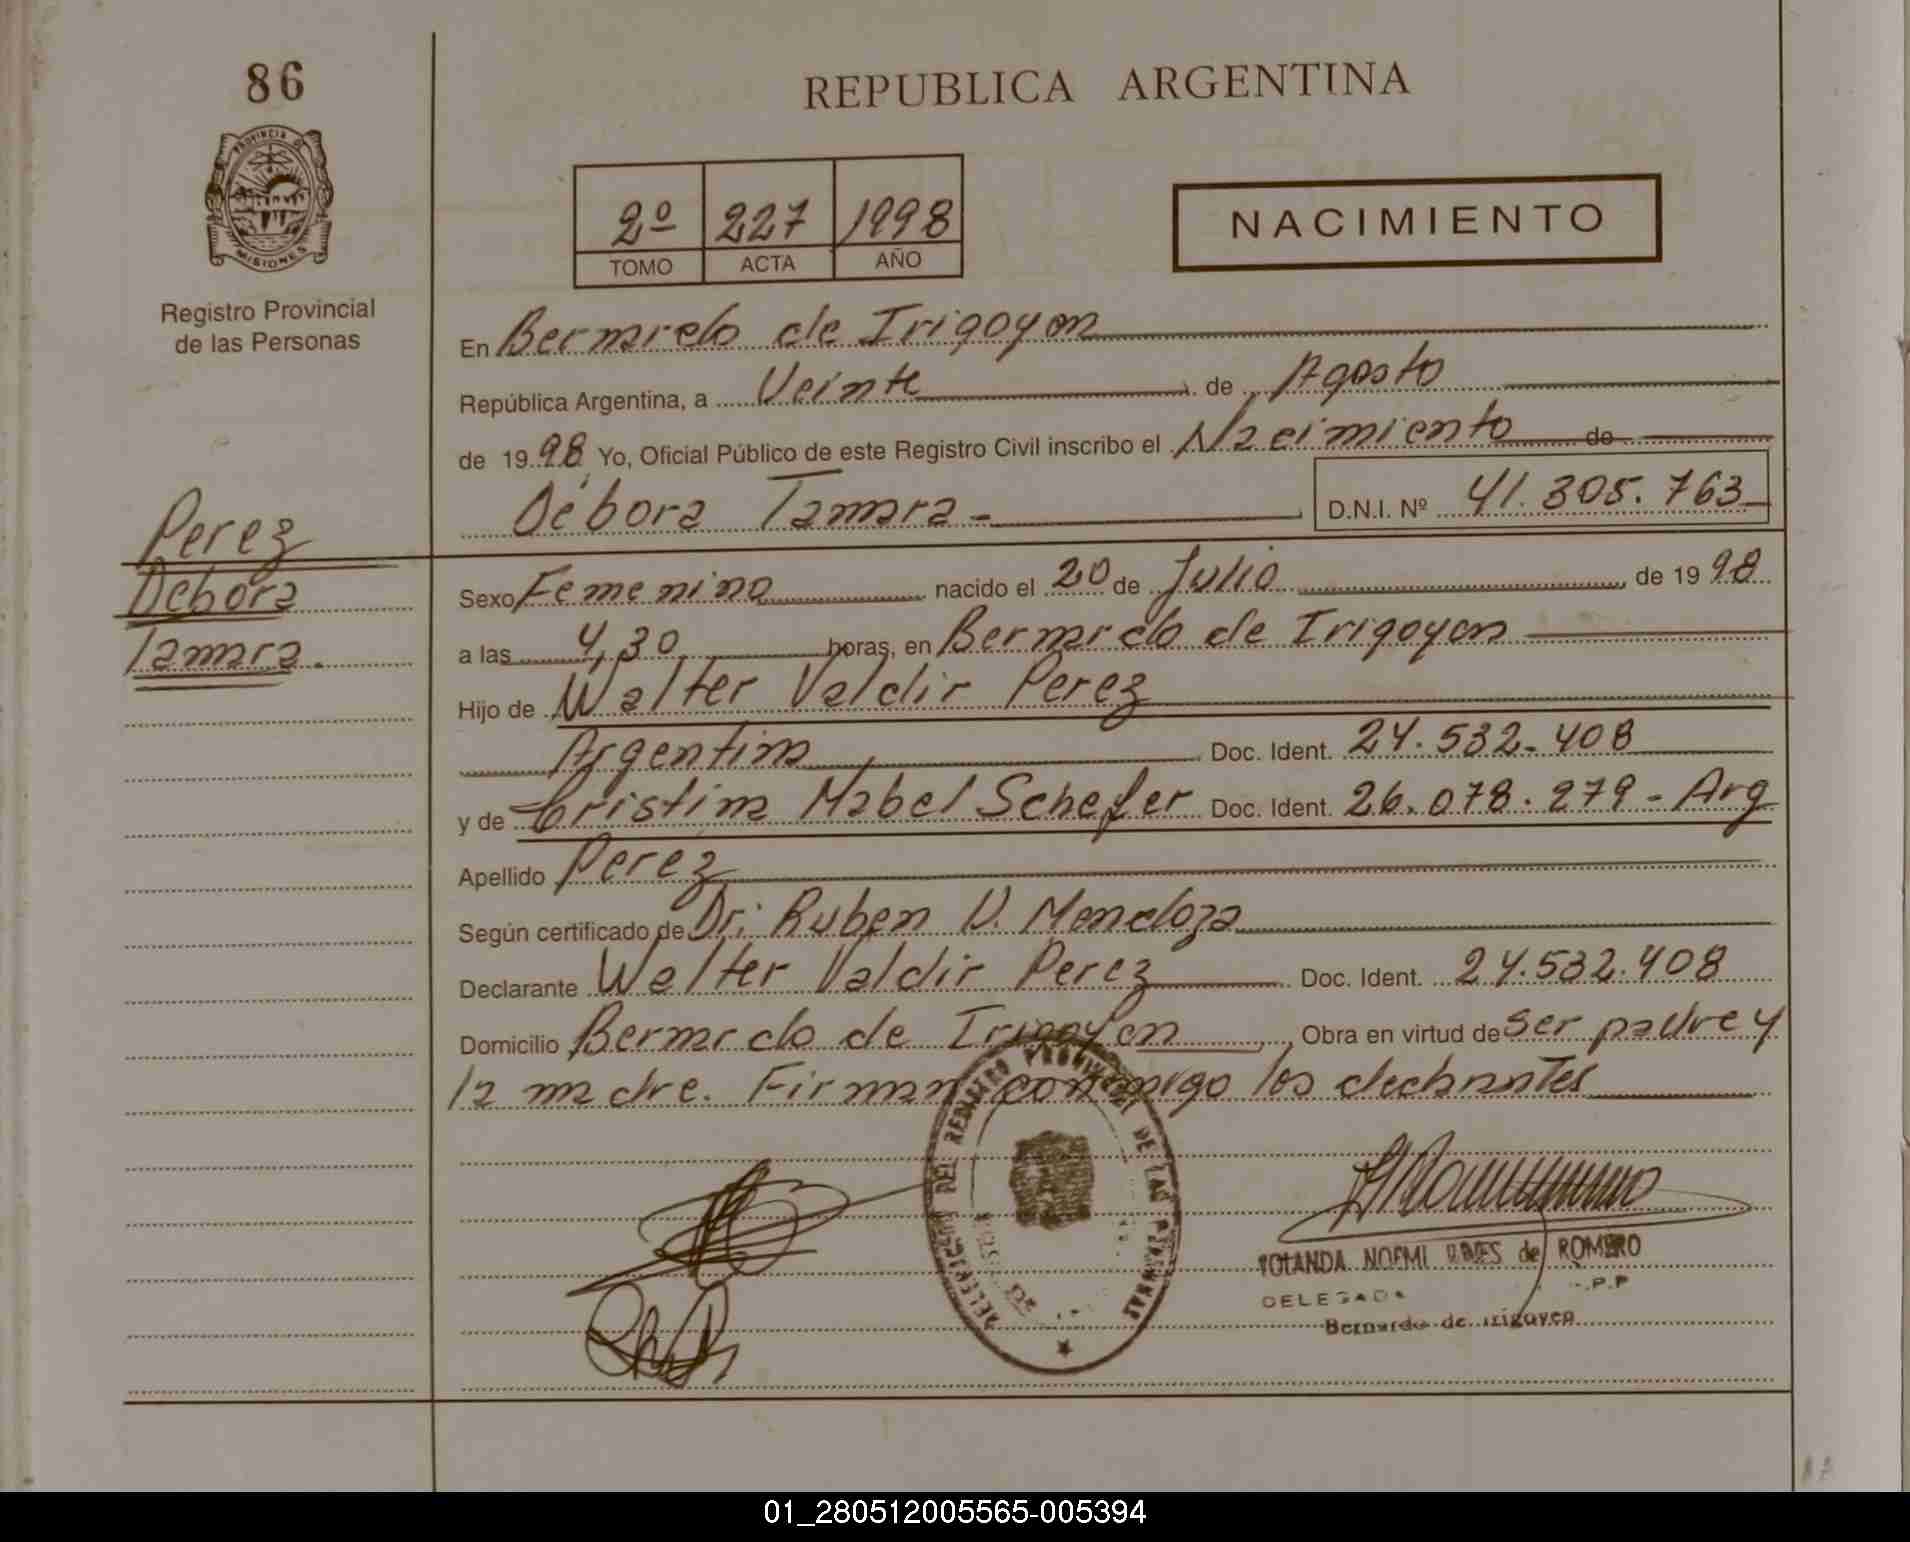 86
REPUBLICA ARGENTINA
PROVINCIA DE
MISIONES
Registro Provincial
de las Personas
2º 227 1998
TOMO ACTA AÑO
NACIMIENTO
En Bernardo de Irigoyen
República Argentina, a Veinte de Agosto
de 1998 Yo, Oficial Público de este Registro Civil inscribo el Nacimiento de
Débora Tamara - D.N.I. Nº 41.305.763
Perez
Debora
Tamara.
Sexo Femenino nacido el 20 de Julio de 1998
a las 4,30 horas, en Bernardo de Irigoyen
Hijo de Walter Valdir Perez
Argentina Doc. Ident. 24.532.408
y de Cristina Mabel Schefer Doc. Ident. 26.078.279 - Arg
Apellido Perez
Según certificado de Dr: Ruben D. Mendoza
Declarante Walter Valdir Perez Doc. Ident. 24.532.408
Domicilio Bernardo de Irigoyen, Obra en virtud de ser padre y
la madre. Firman conmigo los declarantes
DE LAS PERSONAS
YOLANDA NOEMI de ROMERO
DELEGADA
Bernardo de Irigoyen
01_280512005565-005394